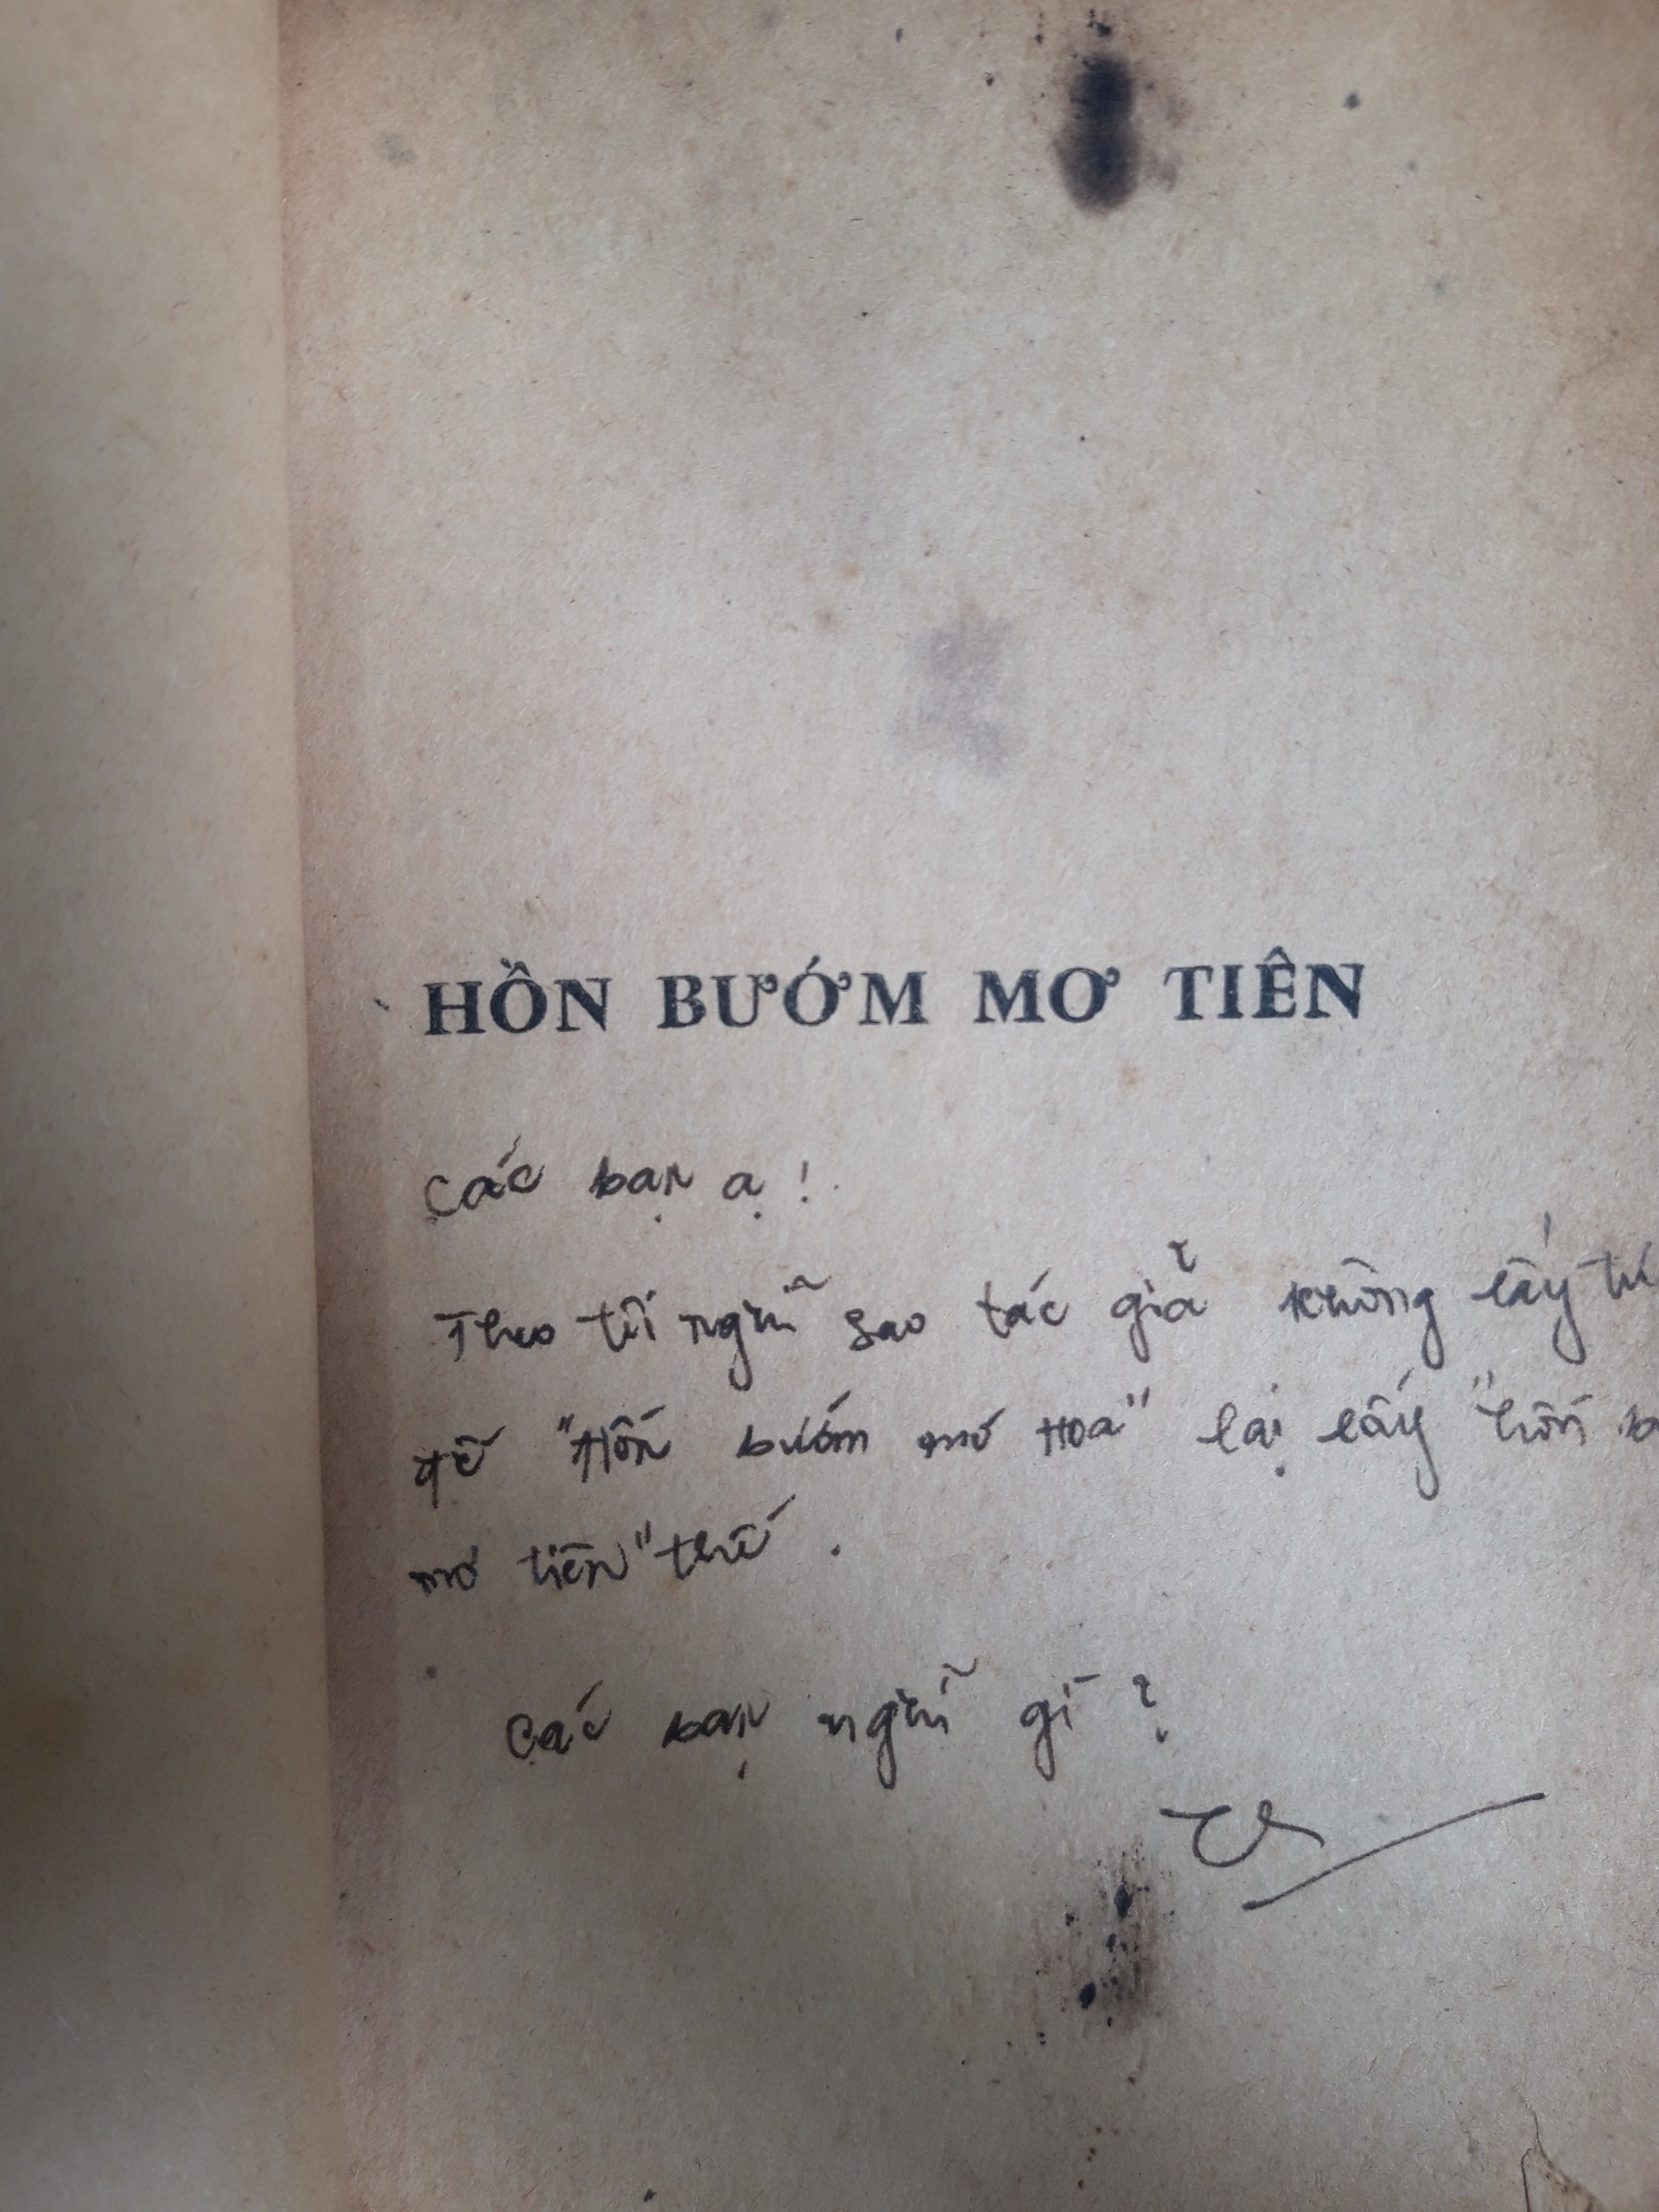 HỒN BƯỚM MƠ TIÊN
Các bạn ạ !
Theo tôi nghĩ sao tác giả không lấy
đề "Hồn bướm mơ Hoa" lại lấy "hồn
mơ tiên" thế .
Các bạn nghĩ gì ?